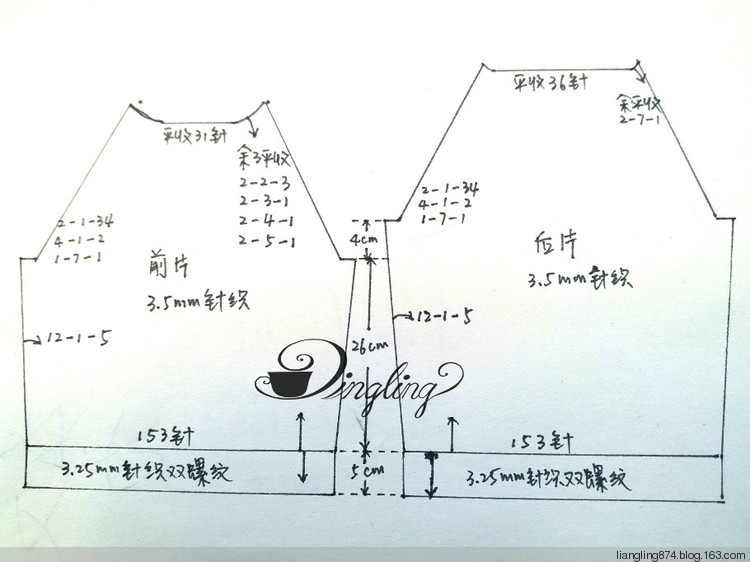 平收31针
余3平收
2-2-3
2-3-1
2-4-1
2-5-1
2-1-34
4-1-2
1-7-1
前片
3.5mm针织
12-1-5
153针
3.25mm针织双螺纹
4cm
26cm
5cm
平收36针
余平收
2-7-1
2-1-34
4-1-2
1-7-1
后片
3.5mm针织
12-1-5
153针
3.25mm针织双螺纹
Dingling
liangling874.blog.163.com